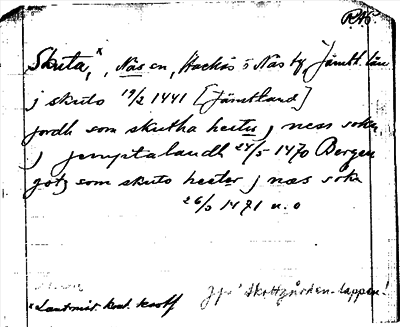 RAÖ.
Skuta,x Näs sn, Hackås o Näs tg, Jämtl. län
j skuto 19/2 1441 [Jämtland]
jordh som skutha heeter j ness sokn
j jemptalandh 24/5 1470 Bergen
gotz som skuto heeter j næs sokn
26/3 1471 n. o
x Lantmät. kont.
Jfr